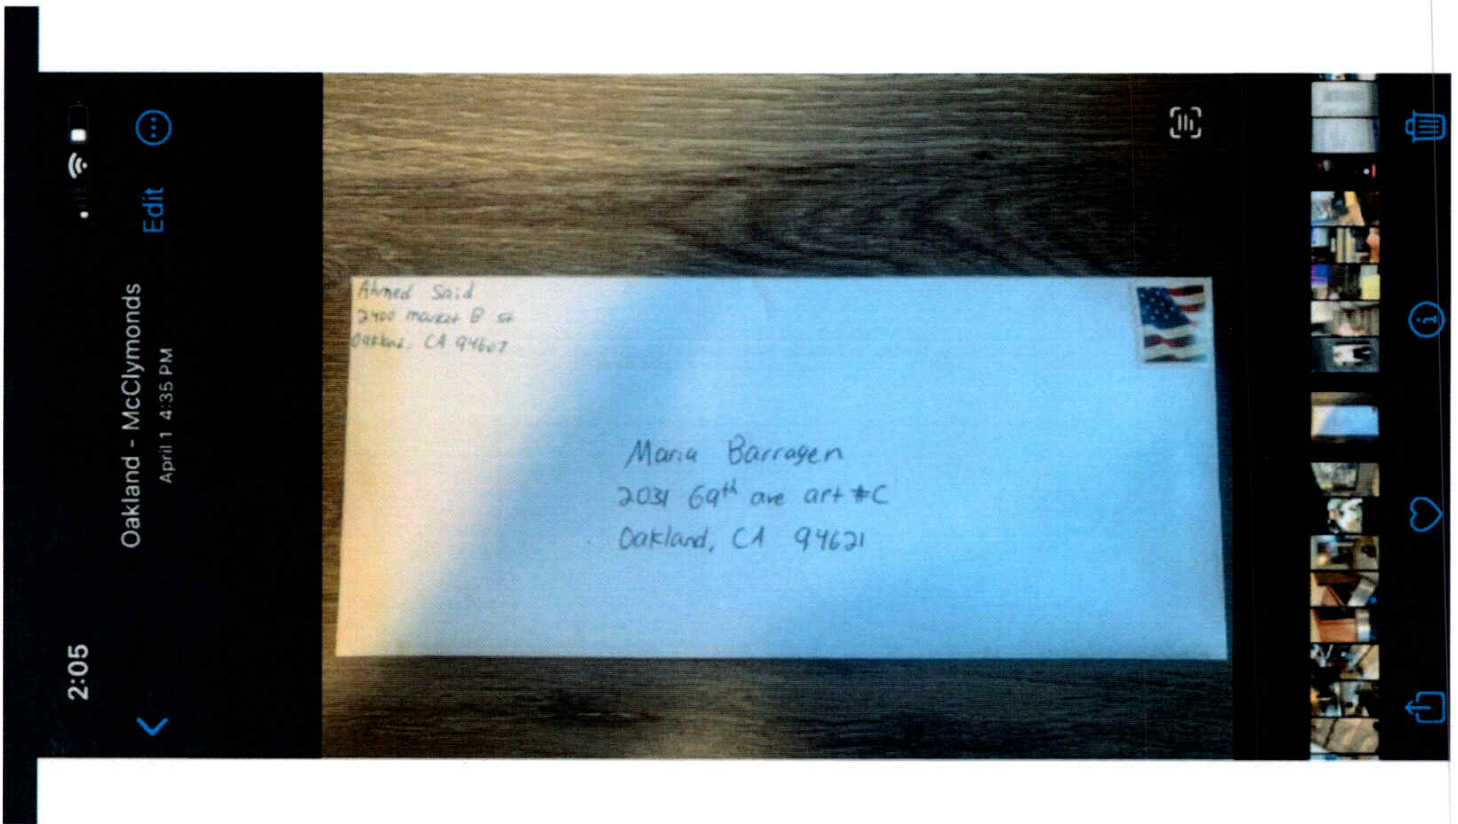 2:05
Oakland - McClymonds
April 1 4:35 PM
Edit
Ahmed Said
2400 market B st
Oakland, CA 94607
Maria Barragen
2031 69th ave apt #C
Oakland, CA 94621